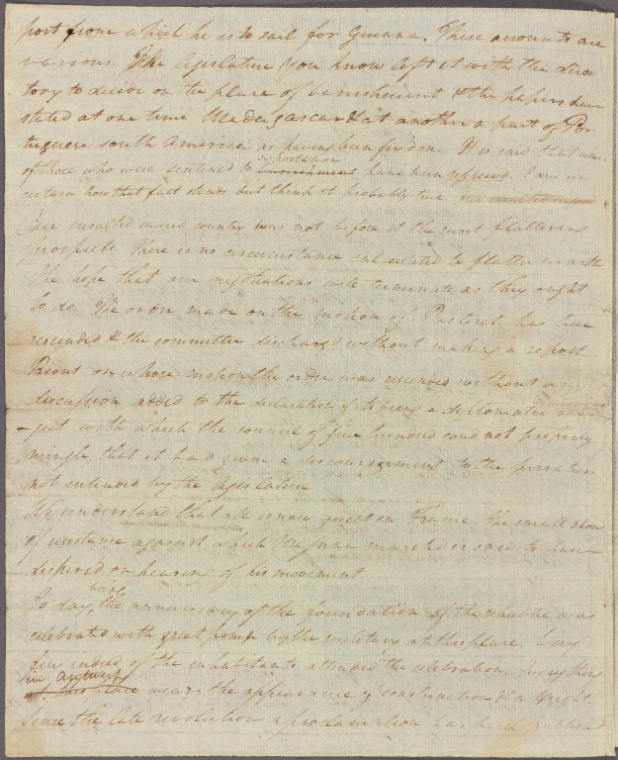 port from which he is to sail for Guiana. These accounts are
various. The legislature you know left it with the direc
tory to decide on the place of banishment & the papers have
stated at one time Madagascar & at another a part of Por
tuguese south America as having been fixd on. It is said that
deportation
of those who were sentenced to banishment have been reprievd. I am un
certain how that fact stands but think it probably true.
Our insulted injurd country has not before it the most flattering
prospects. There is no circumstance calculated to flatter us with
the hope that our negotiations will terminate as they ought
to do. The order made on the motion of Pastoret has been
rescinded & the committee discharged without making a report
Riout on whose motion the order was rescinded without any
discussion added to the declaration of its being a diplomatic sub
-ject with which the council of five hundred coud not properly
mingle that it had given a discouragement to the privateers
not intended by the legislature
We understand that all is now quiet in France the small show
of resistance against which marchd is said to have
dispersd on hearing of his movement.
being
To day, the anniversary of the foundation of the republic was
celebrated with great pomp by the military at this place. Very
few indeed of the inhabitants attended the celebration. Every thing
in Antwerp
wears the appearance of consternation & affright.
Since the late revolution a proclamation has been publishd